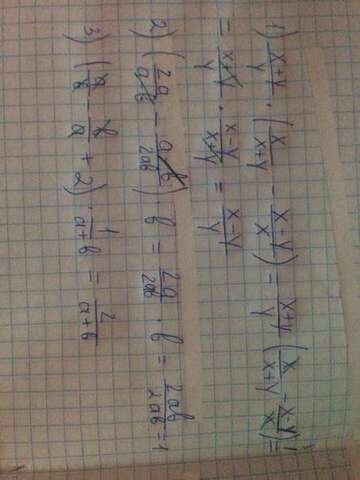 1) \frac{x+y}{y} \cdot \left(\frac{x}{x+y} - \frac{x-y}{x}\right) = \frac{x+y}{y} \left(\frac{x}{x+y} - \frac{x-y}{x}\right) =
= \frac{x+y}{y} \cdot \frac{x-y}{x+y} = \frac{x-y}{y}
2) \left(\frac{2a}{ab} - \frac{ab}{2ab}\right) \cdot b = \frac{2a}{2ab} \cdot b = \frac{2ab}{2ab} = 1
3) \left(\frac{a}{b} - \frac{b}{a} + 2\right) \cdot \frac{1}{a+b} = \frac{2}{a+b}